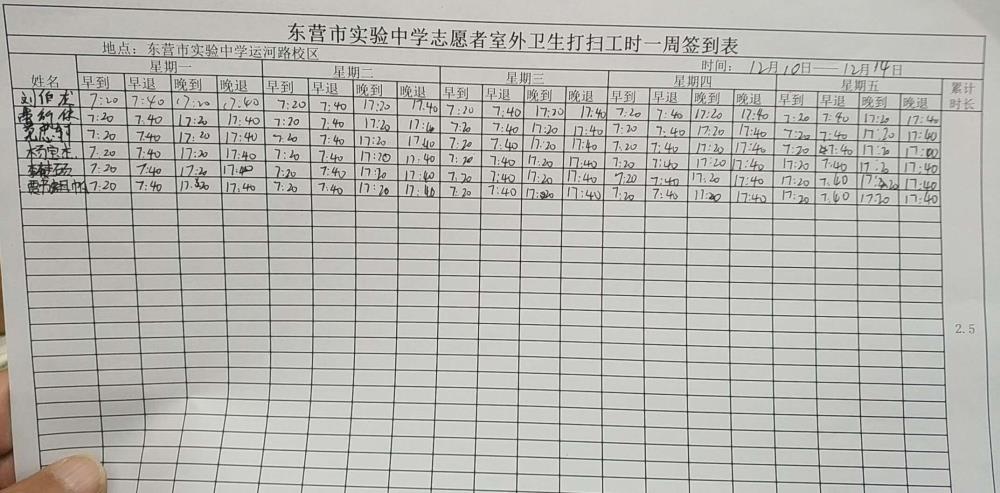 东营市实验中学志愿者室外卫生打扫工时一周签到表
地点：东营市实验中学运河路校区 时间：12月10日——12月14日
姓名 星期一 星期二 星期三 星期四 星期五 累计时长
早到 早退 晚到 晚退 早到 早退 晚到 晚退 早到 早退 晚到 晚退 早到 早退 晚到 晚退 早到 早退 晚到 晚退
刘伯龙 7:20 7:40 17:20 17:40 7:20 7:40 17:20 17:40 7:20 7:40 17:20 17:40 7:20 7:40 17:20 17:40 7:20 7:40 17:20 17:40
7:20 7:40 17:20 17:40 7:20 7:40 17:20 17:40 7:20 7:40 17:20 17:40 7:20 7:40 17:20 17:40 7:20 7:40 17:20 17:40
7:20 7:40 17:20 17:40 7:20 7:40 17:20 17:40 7:20 7:40 17:20 17:40 7:20 7:40 17:20 17:40 7:20 7:40 17:20
杨宝杰 7:20 7:40 17:20 17:40 7:20 7:40 17:20 17:40 7:20 7:40 17:20 17:40 7:20 7:40 17:20 17:40 17:20 7:40 17:20 17:40
7:20 7:40 17:20 17:40 7:20 7:40 17:20 17:40 7:20 7:40 17:20 17:40 7:20 7:40 17:20 17:40 17:20 7:40 17:40
7:20 7:40 17:20 17:40 7:20 7:40 17:20 17:40 7:20 7:40 17:20 17:40 7:20 7:40 17:20 17:40 17:20 7:40 17:20 17:40
2.5